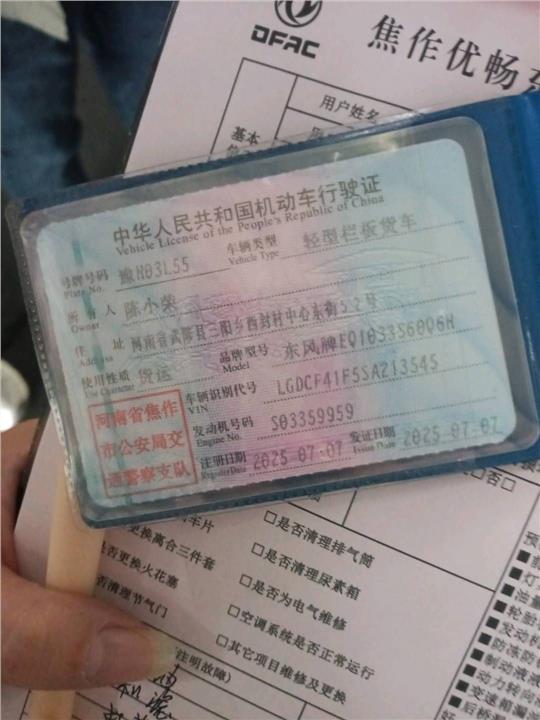 DFAC
焦作优畅东
用户姓名
基本
中华人民共和国机动车行驶证
Vehicle License of the People's Republic of China
号牌号码 豫H03L55 车辆类型 轻型栏板货车
Plate No. Vehicle Type
所有人 陈小荣
Owner
住址 河南省武陟县三阳乡西封村中心东街52号
Address
使用性质 货运 品牌型号 东风牌EQ1033S60Q6H
Model
车辆识别代号 LGDCF41F5SA213545
VIN
发动机号码 S03359959
Engine No.
注册日期 2025-07-07 发证日期 2025-07-07
Register Date Issue Date
河南省焦作
市公安局交
通警察支队
□否□
车片
□是否清理排气筒
否更换离合三件套
□是否清理尿素箱
是否更换火花塞
□是否为电气维修
否清理节气门
□空调系统是否正常运行
□其它项目维修及更换
(注明故障)
预
■灯
■油量
■轮胎
■发动机
■防冻防
■制动液
■动力转向
■变速箱漏
■后桥